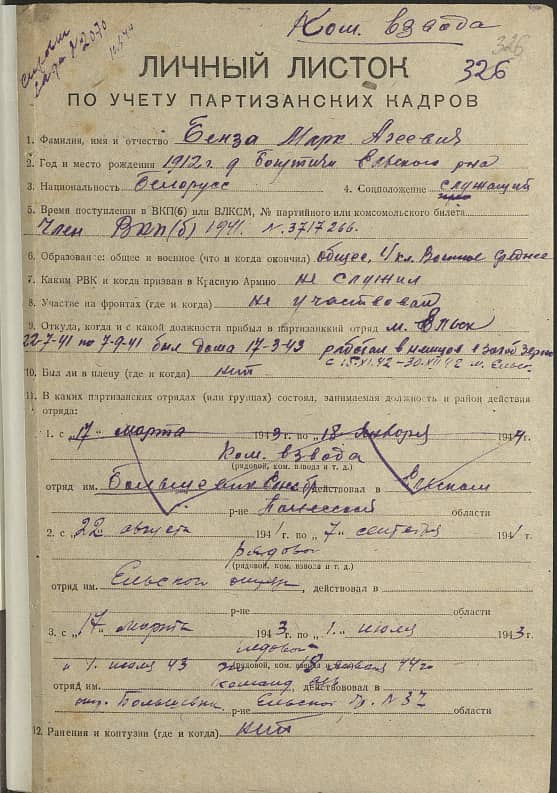 Ком. взвода
326
326
ЛИЧНЫЙ ЛИСТОК
ПО УЧЕТУ ПАРТИЗАНСКИХ КАДРОВ
1. Фамилия, имя и отчество Бенза Марк
2. Год и место рождения 1912 г. д Ельского рна
3. Национальность Белорусс 4. Соцположение служащий
5. Время поступления в ВКП(б) или ВЛКСМ, № партийного или комсомольского билета
Член ВКП(б) 1941. N. 3717266.
6. Образование: общее и военное (что и когда окончил) общее, 4 кл. Военное среднее
7. Каким РВК и когда призван в Красную Армию не служил
8. Участие на фронтах (где и когда) не участвовал
9. Откуда, когда и с какой должности прибыл в партизанский отряд м. Ельск
22-7-41 по 7-9-41 был дома 17-3-43 работал в немцов в
с 15.XI.42-30.XII.42 м. Ельск.
10. Был ли в плену (где и когда) нит
11. В каких партизанских отрядах (или группах) состоял, занимаемая должность и район действия
отряда:
1. с „17" марта 1943 г. по „18" января 1944 г.
Ком. взвода
(рядовой, ком. взвода и т. д.)
отряд им. Большевик действовал в Ельском
р-не Полесской области
2. с „22" августа 1941 г. по „7" сентября 1941 г.
рядовой
(рядовой, ком. взвода и т. д.)
отряд им. Ельский действовал в
р-не области
3. с „17" марта 1943 г. по „1" июля 1943 г.
рядовой
„1" июля 43 (рядовой, ком. взвода и т. д.) января 44 г.
отряд им. действовал в
отр. Большевик р-не Ельской бр. N 37 области
12. Ранения и контузии (где и когда) нит